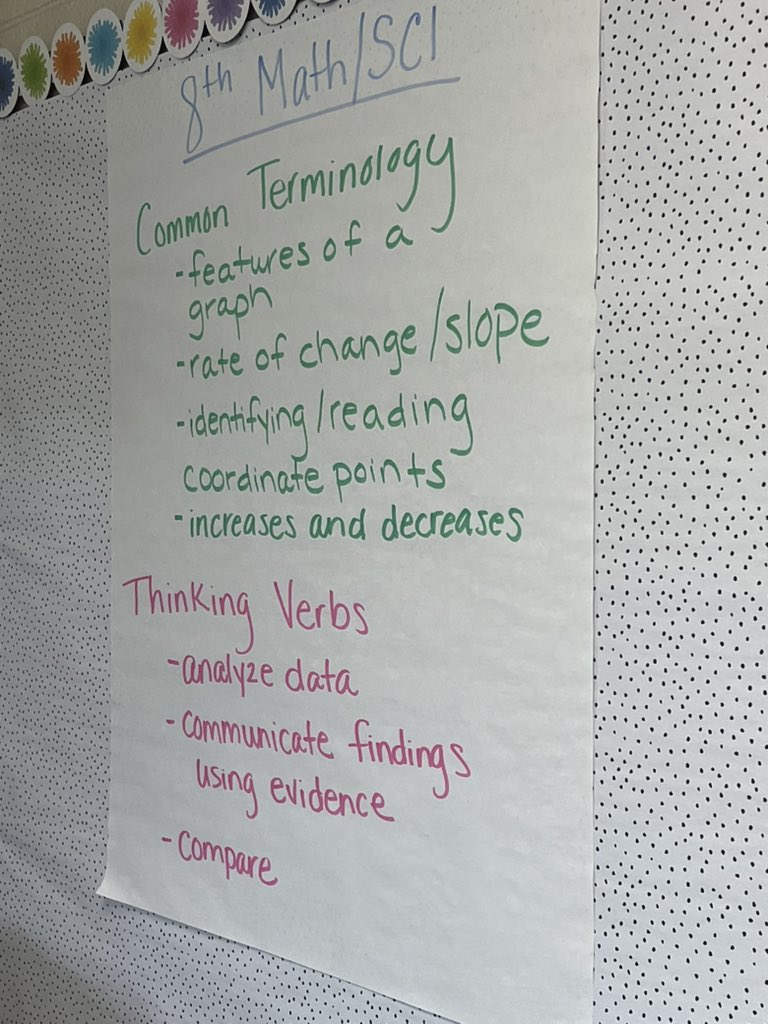 8th Math/SCI
Common Terminology
-features of a
graph
-rate of change/slope
-identifying/reading
coordinate points
-increases and decreases
Thinking Verbs
-analyze data
-communicate findings
using evidence
-compare